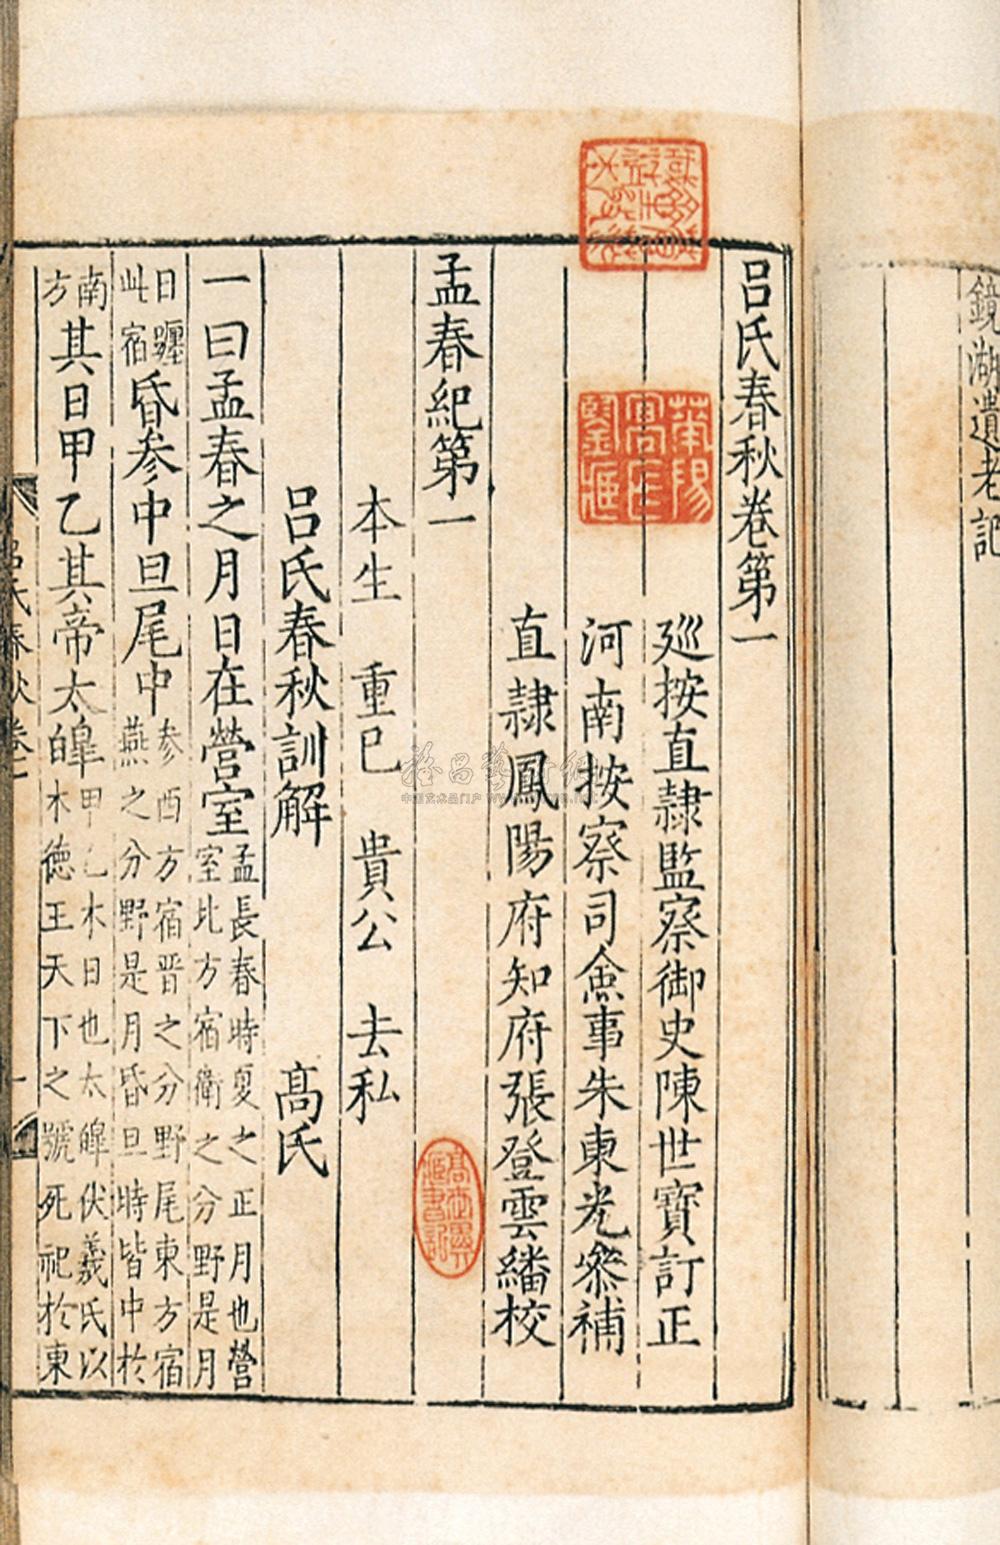 鏡湖遺老記
呂氏春秋卷第一
廵按直隸監察御史陳世寶訂正
河南按察司僉事朱東光叅補
直隸鳳陽府知府張登雲繙校
孟春紀第一
本生 重已 貴公 去私
呂氏春秋訓解 髙氏
一曰孟春之月日在營室孟長春時夏之正月也營
室北方宿衛之分野是月
日躔
此宿昏参中旦尾中参西方宿晋之分野尾東方宿
燕之分野是月昏旦時皆中於
南
方其日甲乙其帝太皥甲乙木日也太皥伏羲氏以
木德王天下之號死祀於東
呂氏春秋卷一
一